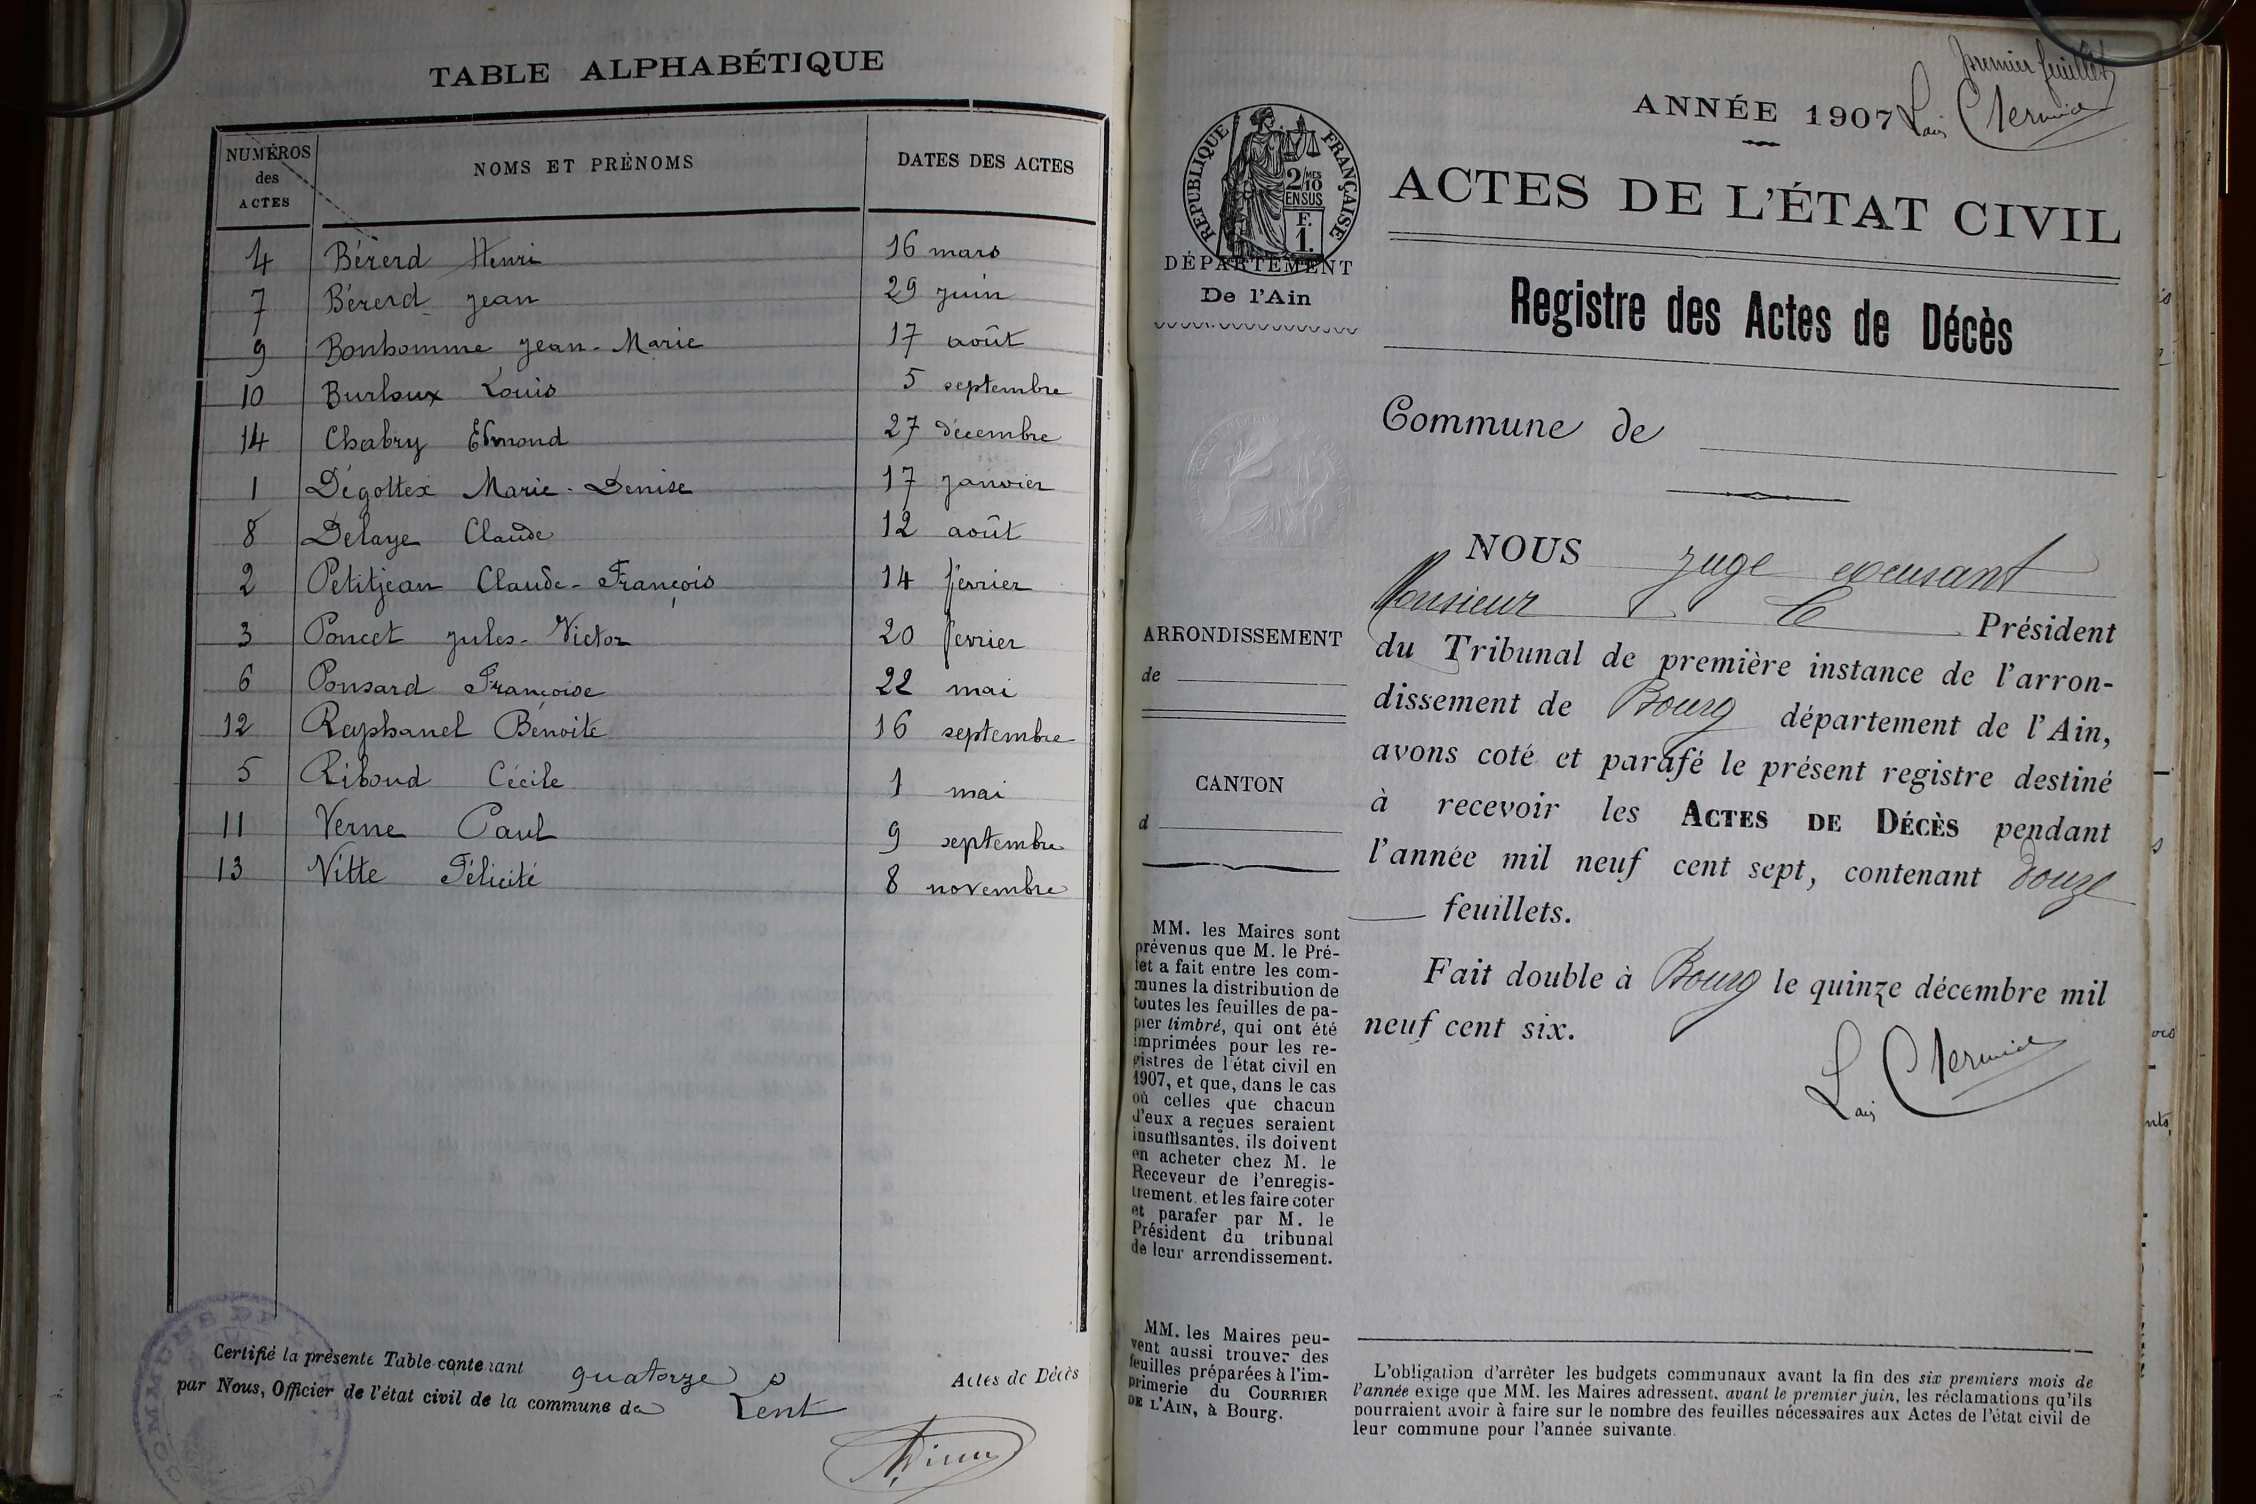 TABLE ALPHABÉTIQUE
NUMÉROS des ACTES NOMS ET PRÉNOMS DATES DES ACTES
4 Bérerd Henri 16 mars
7 Bérerd Jean 29 juin
9 Bonhomme Jean-Marie 17 août
10 Burloux Louis 5 septembre
14 Chabry Edmond 27 décembre
1 Dégottex Marie-Denise 17 janvier
8 Delaye Claude 12 août
2 Petitjean Claude-François 14 février
3 Poncet Jules-Victor 20 février
6 Ponsard Françoise 22 mai
12 Raphanel Bénoite 16 septembre
5 Riboud Cécile 1 mai
11 Verne Paul 9 septembre
13 Vitte Félicité 8 novembre
Certifié la présente Table contenant quatorze Actes de Décès
par Nous, Officier de l'état civil de la commune de Lent
COMMUNE DE
premier feuillet
ANNÉE 1907
RÉPUBLIQUE FRANÇAISE
2/10 MES
EN SUS
F.
1.
ACTES DE L'ÉTAT CIVIL
DÉPARTEMENT
De l'Ain
Registre des Actes de Décès
Commune de
NOUS juge
Monsieur le Président
du Tribunal de première instance de l'arron-
dissement de Bourg département de l'Ain,
avons coté et parafé le présent registre destiné
à recevoir les ACTES DE DÉCÈS pendant
l'année mil neuf cent sept, contenant douze
feuillets.
Fait double à Bourg le quinze décembre mil
neuf cent six.
ARRONDISSEMENT
de
CANTON
d
MM. les Maires sont
prévenus que M. le Pré-
fet a fait entre les com-
munes la distribution de
toutes les feuilles de pa-
pier timbré, qui ont été
imprimées pour les re-
gistres de l'état civil en
1907, et que, dans le cas
où celles que chacun
d'eux a reçues seraient
insuffisantes, ils doivent
en acheter chez M. le
Receveur de l'enregis-
trement, et les faire coter
et parafer par M. le
Président du tribunal
de leur arrondissement.
MM. les Maires peu-
vent aussi trouver des
feuilles préparées à l'im-
primerie du COURRIER
DE L'AIN, à Bourg.
L'obligation d'arrêter les budgets communaux avant la fin des six premiers mois de
l'année exige que MM. les Maires adressent, avant le premier juin, les réclamations qu'ils
pourraient avoir à faire sur le nombre des feuilles nécessaires aux Actes de l'état civil de
leur commune pour l'année suivante.